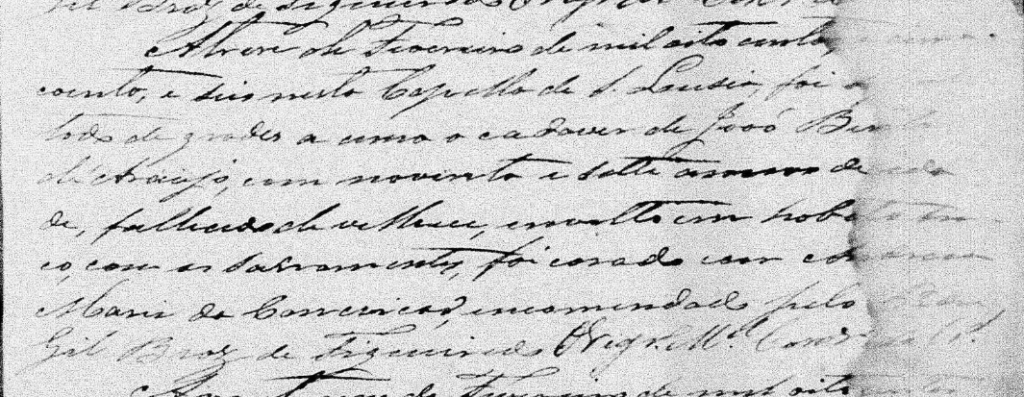 Gil Braz de Figueiredo O Vigr.º
Ahove de Fevereiro de mil oito centos e
coenta, e seis nesta Capella de S. Lusia, foi
tado de grades a sima o cadaver de João Bento
de Araujo, com noventa e sette annos de ida
de, fallecido de velhece, involto em habito bran
co, com os sacramentos, foi casado com
Maria da Conceicaõ, encomendado pelo Padre
Gil Braz de Figueiredo O Vigr.º M.el
de Fevereiro de mil oito centos